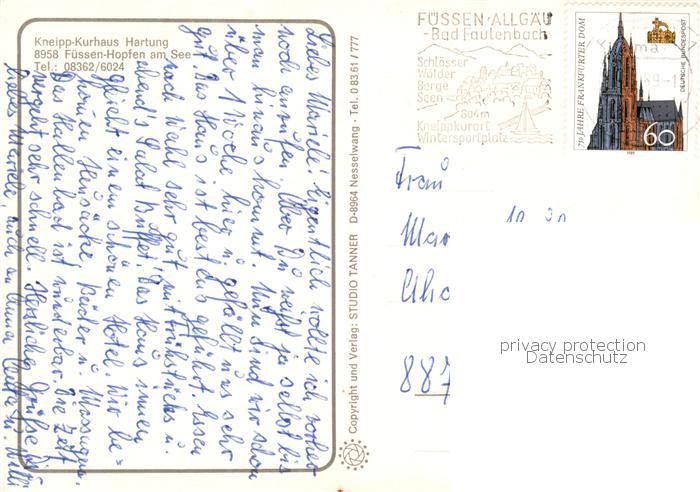 Kneipp-Kurhaus Hartung
8958 Füssen-Hopfen am See
Tel.: 08362/6024
Liebes Mariele! Eigentlich wollte ich vorher
noch anrufen. Aber Du weißt ja selbst bis
man hinaus kommt. Nun sind wir schon
über 1 Woche hier u. gefällt uns sehr
gut. Das Haus ist bestens geführt. Essen
nach Wahl sehr gut mit Frühstücks u.
abend's Salat Büffet! Das Haus innen
gleicht einem schönen Hotel. Wir be=
Heusäcke, Bäder u. Massagen.
Das Hallenbad ist wunderbar. Die Zeit
vergeht sehr schnell. Herzliche Grüße Dir
liebes Mariele, auch an Anna u. Willi
Copyright und Verlag: STUDIO TANNER D-8964 Nesselwang · Tel. 0 83 61 / 777
FÜSSEN·ALLGÄU
-Bad Faulenbach
Schlösser
Wälder
Berge
Seen
804m
Kneippkurort
Wintersportplatz
750 JAHRE FRANKFURTER DOM
DEUTSCHE BUNDESPOST
60
1989
Frau
Mar
887
privacy protection
Datenschutz